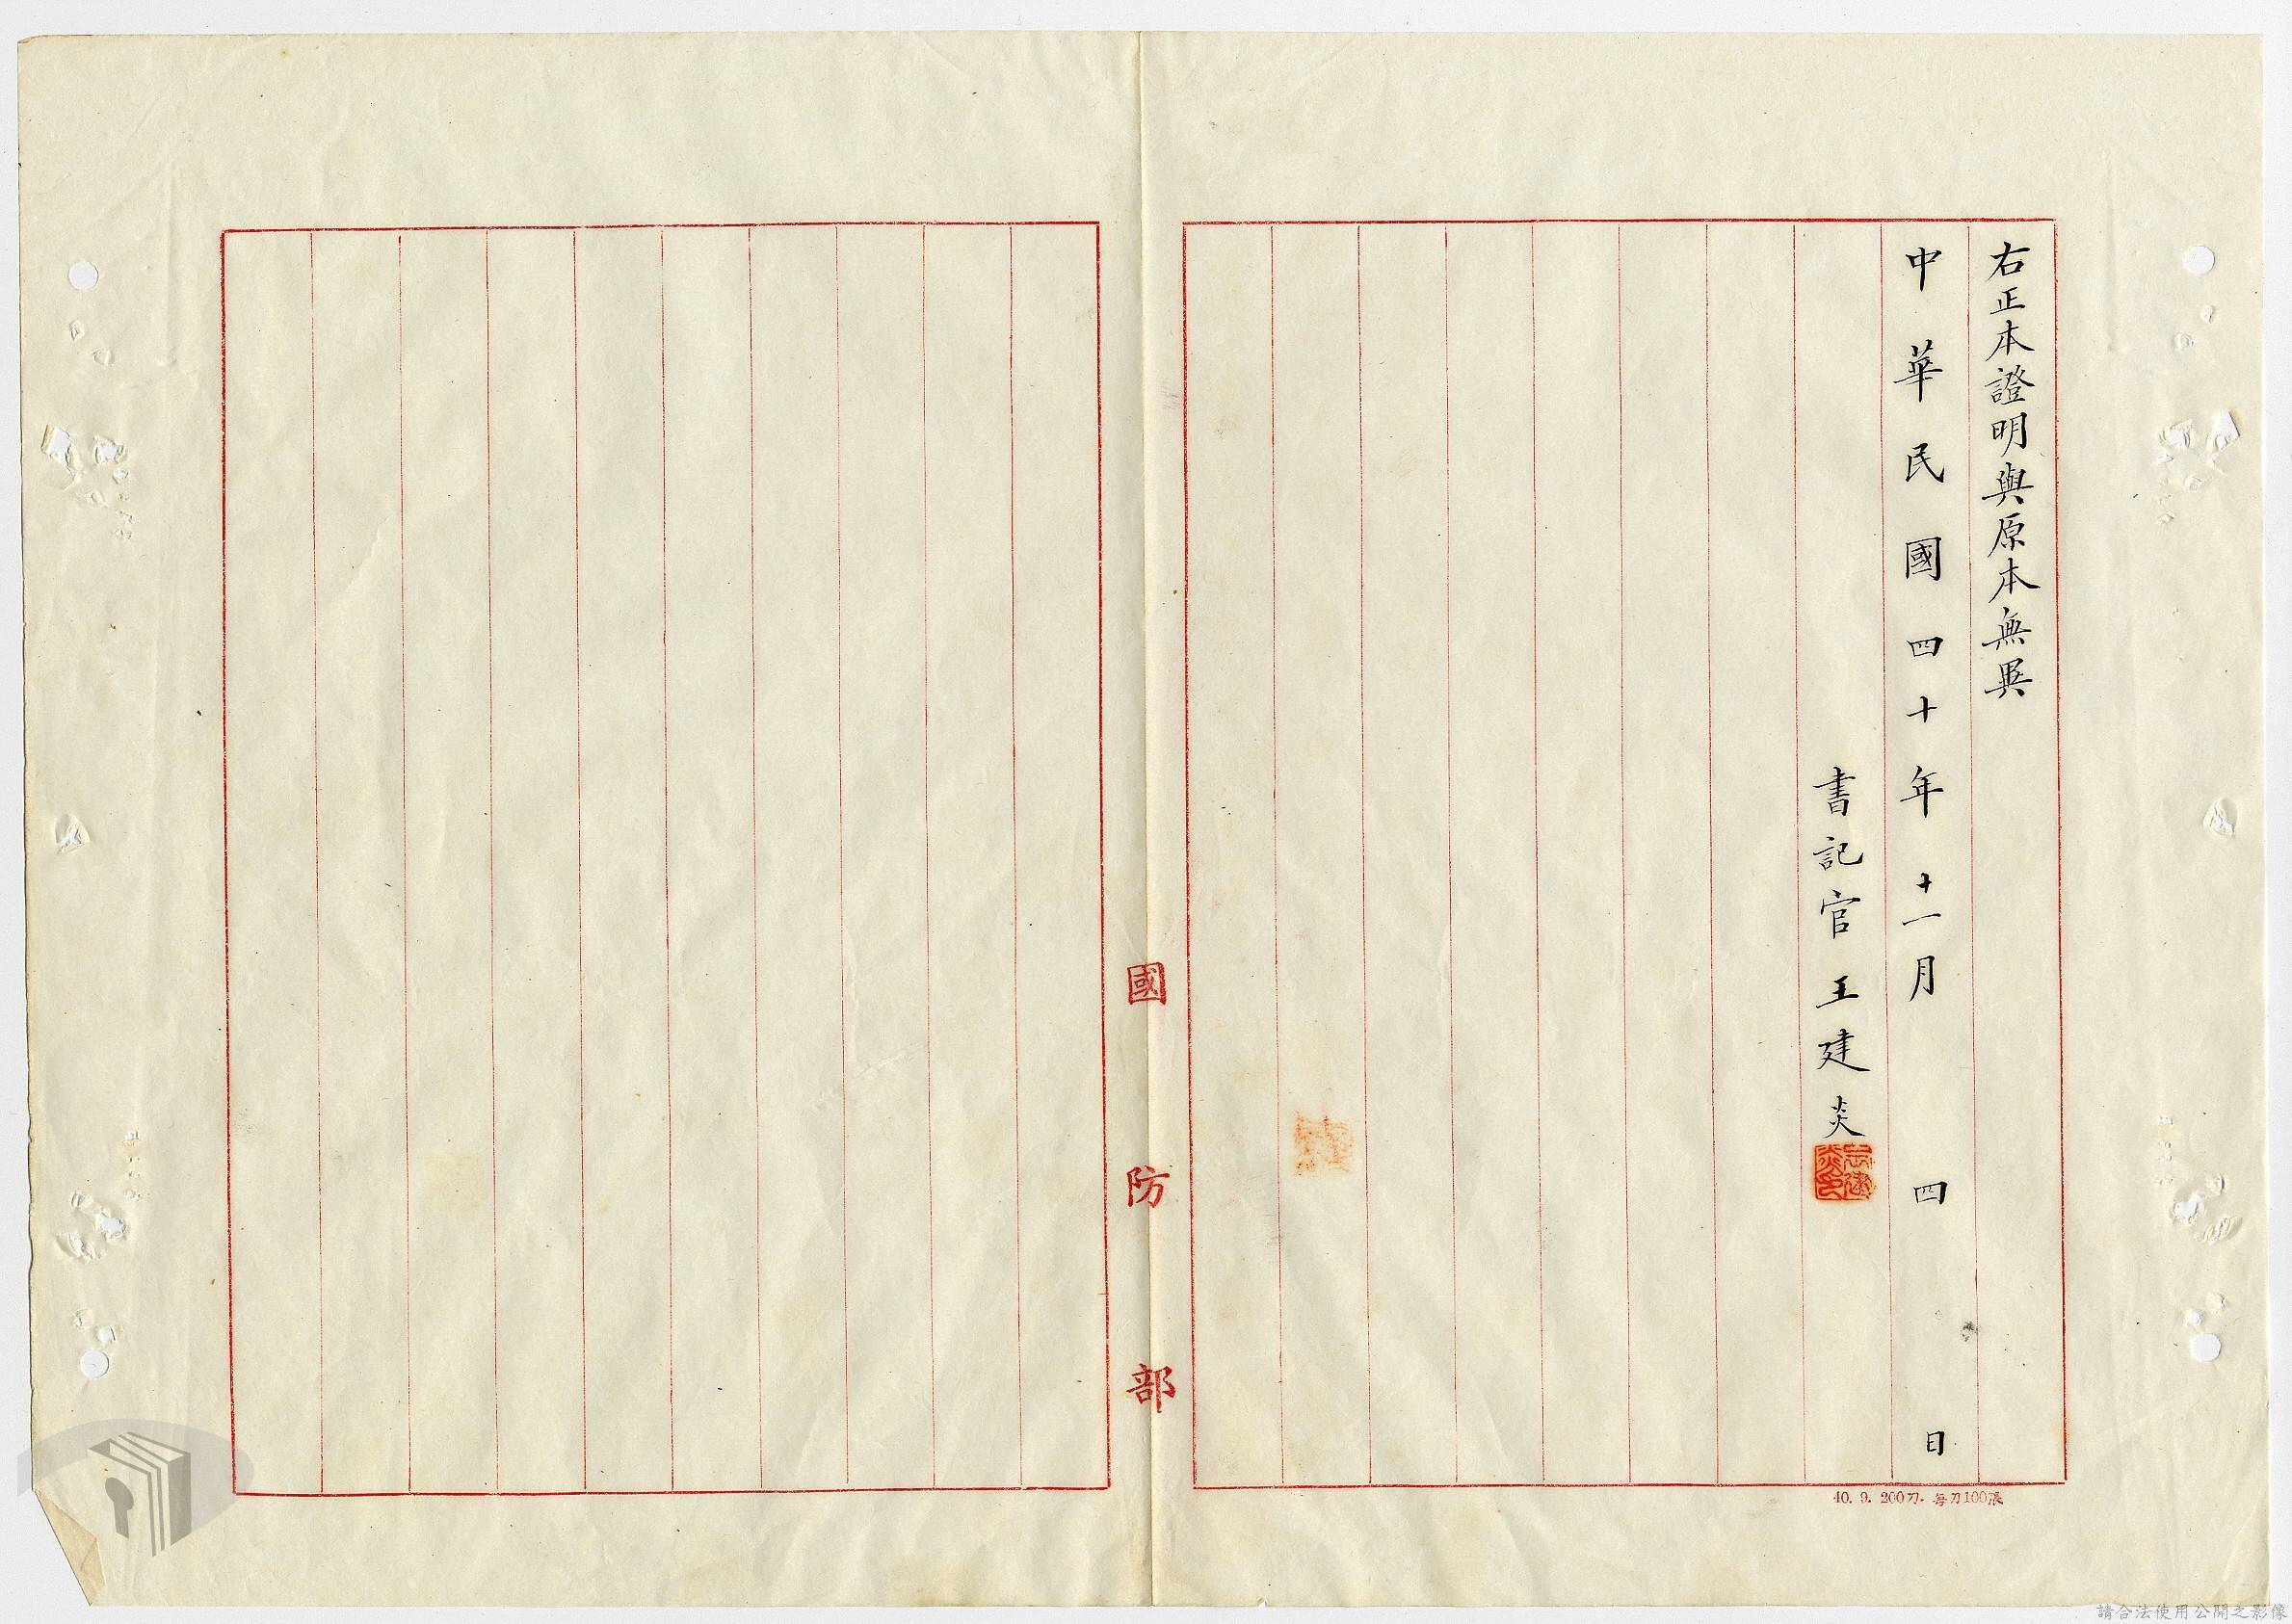 右正本證明與原本無異
中華民國四十年十一月四日
書記官王建炎
王建炎印
國防部
40. 9. 200刀. 每刀100張
請合法使用公開之影像